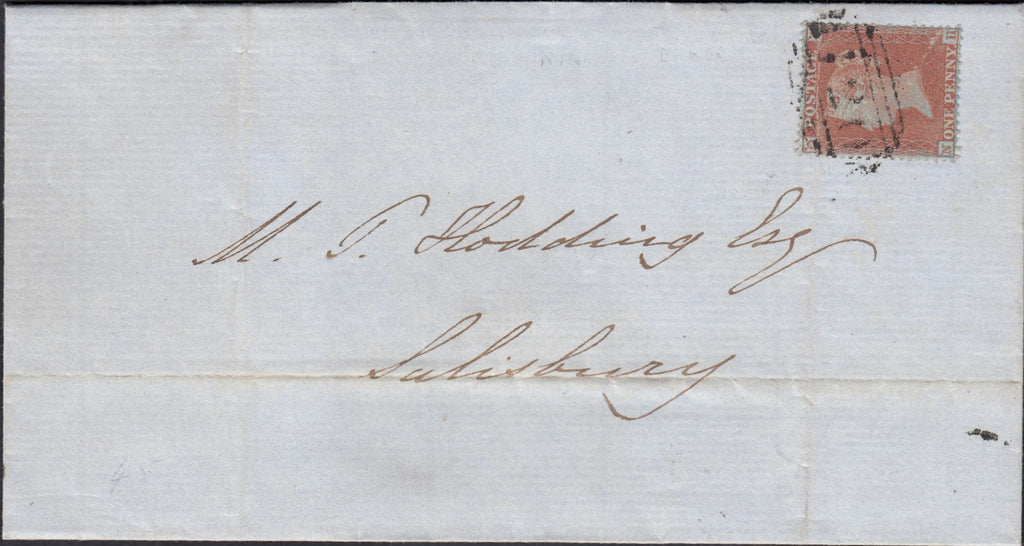 POSTAGE
ONE PENNY
M. T. Hodding Esq
Salisbury